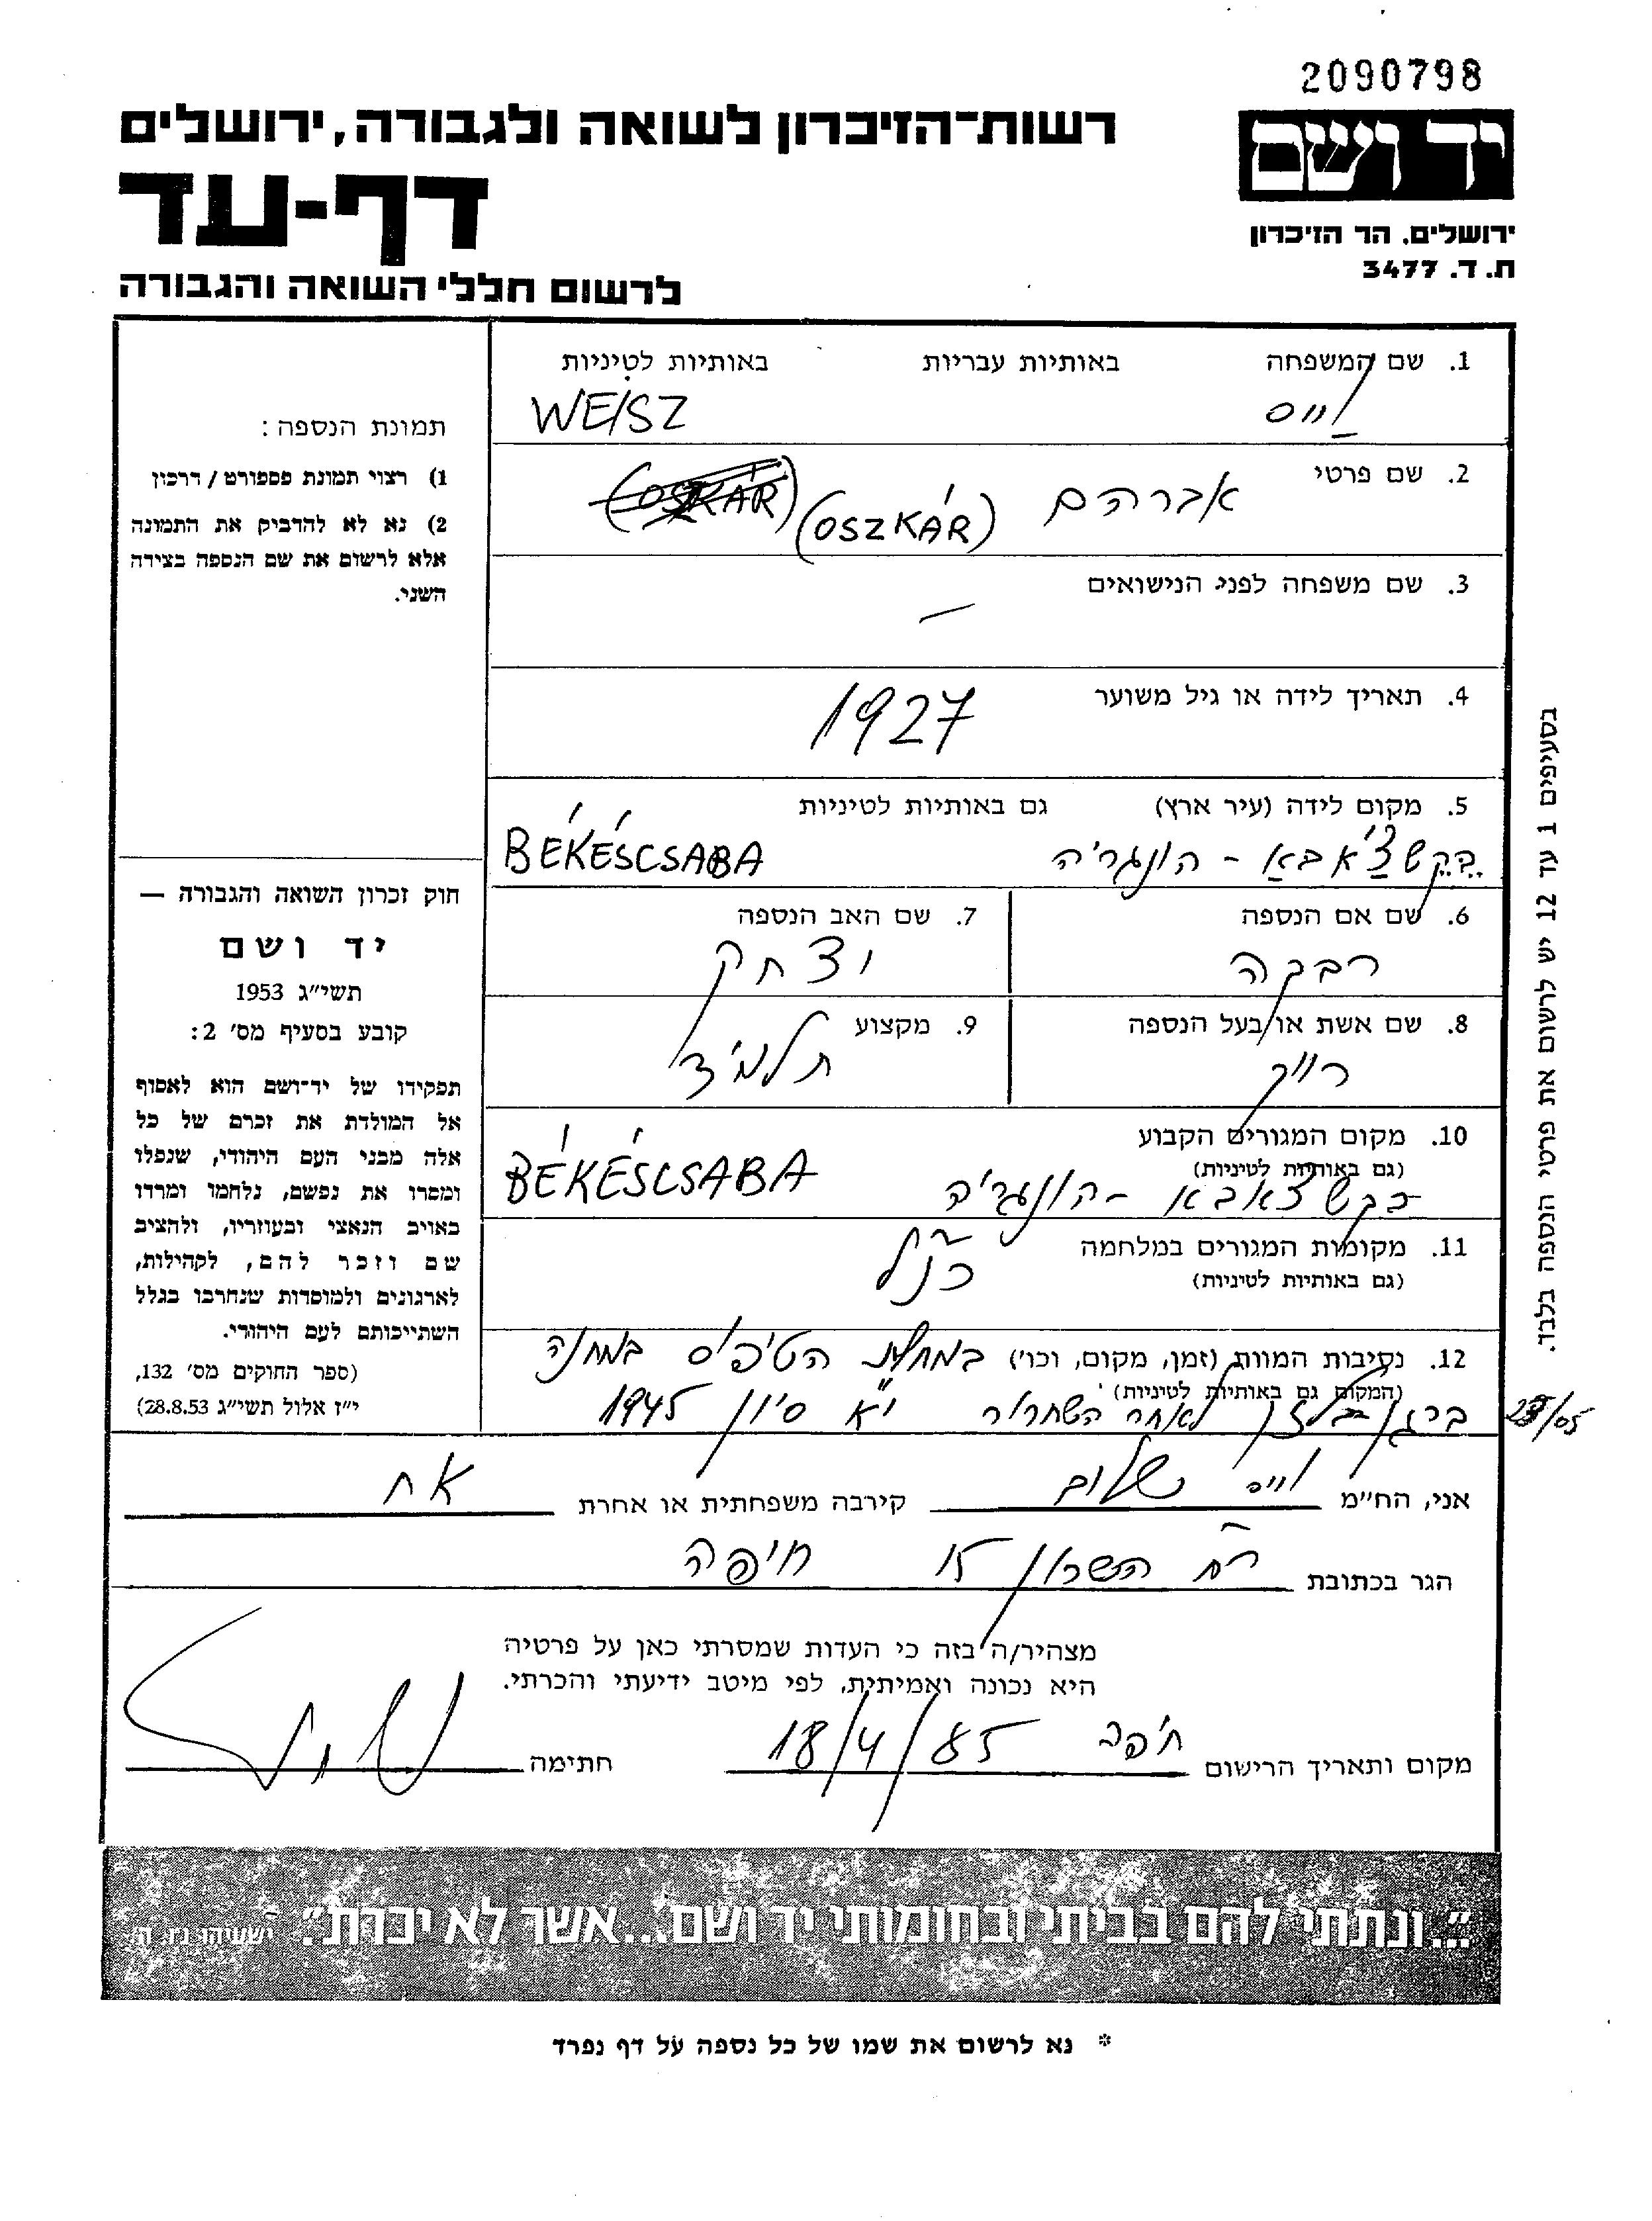 2090798
יד ושם
ירושלים. הר הזיכרון
ת. ד. 3477
רשות־הזיכרון לשואה ולגבורה, ירושלים
דף-עד
לרשום חללי השואה והגבורה
1. שם המשפחה באותיות עבריות באותיות לטיניות
וייס WEISZ
2. שם פרטי
אברהם (OSZKÁR) (OSKÁR)
3. שם משפחה לפני הנישואים
–
4. תאריך לידה או גיל משוער
1927
5. מקום לידה (עיר ארץ) גם באותיות לטיניות
בקשצ'אבא - הונגריה BÉKÉSCSABA
6. שם אם הנספה
רבקה
7. שם האב הנספה
יצחק
8. שם אשת או/בעל הנספה
רווק
9. מקצוע
תלמיד
10. מקום המגורים הקבוע
(גם באותיות לטיניות)
בקשצאבא - הונגריה BÉKÉSCSABA
11. מקומות המגורים במלחמה
(גם באותיות לטיניות)
כנ"ל
12. נסיבות המוות (זמן, מקום, וכו') במחלת הטיפוס במחנה
(המקום גם באותיות לטיניות)
ברגן בלזן לאחר השחרור י"א סיון 1945
בסעיפים 1 עד 12 יש לרשום את פרטי הנספה בלבד.
תמונת הנספה:
1) רצוי תמונת פספורט / דרכון
2) נא לא להדביק את התמונה
אלא לרשום את שם הנספה בצידה
השני.
חוק זכרון השואה והגבורה —
יד ושם
תשי״ג 1953
קובע בסעיף מס׳ 2:
תפקידו של יד־ושם הוא לאסוף
אל המולדת את זכרם של כל
אלה מבני העם היהודי, שנפלו
ומסרו את נפשם, נלחמו ומרדו
באויב הנאצי ובעוזריו, ולהציב
שם וזכר להם, לקהילות,
לארגונים ולמוסדות שנחרבו בגלל
השתייכותם לעם היהודי.
(ספר החוקים מס׳ 132,
י״ז אלול תשי״ג 28.8.53)
אני, הח״מ וייס שלום קירבה משפחתית או אחרת אח
הגר בכתובת רח' השרון 15 חיפה
מצהיר/ה בזה כי העדות שמסרתי כאן על פרטיה
היא נכונה ואמיתית, לפי מיטב ידיעתי והכרתי.
מקום ותאריך הרישום חיפה 18/4/85 חתימה
״...ונתתי להם בביתי ובחומותי יד ושם...אשר לא יכרת״. ישעיהו נו, ה
* נא לרשום את שמו של כל נספה על דף נפרד